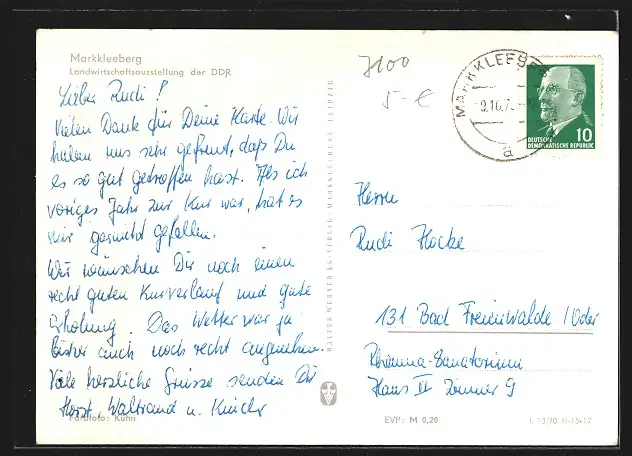 Markkleeberg
Landwirtschaftsausstellung der DDR
Lieber Rudi!
Vielen Dank für Deine Karte. Wir
haben uns sehr gefreut, daß Du
es so gut getroffen hast. Als ich
voriges Jahr zur Kur war, hat es
mir garnicht gefallen.
Wir wünschen Dir noch einen
recht guten Kurverlauf und gute
Erholung. Das Wetter war ja
bisher auch noch recht angenehm.
Viele herzliche Grüsse senden Dir
Horst, Waltraud u. Kinder
Farbfoto: Kühn
LEIPZIG
7100
5-€
MARKKLEEBERG
a
10
DEUTSCHE
DEMOKRATISCHE REPUBLIK
Herrn
Rudi Hocke
131 Bad Freienwalde/Oder
Rheuma-Sanatorium
Haus II Zimmer 9
EVP: M 0,20